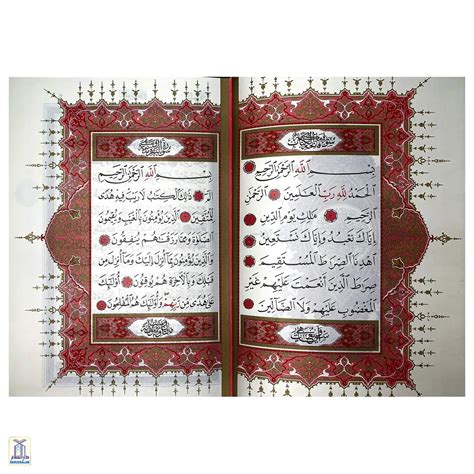 سورة فاتحة الكتاب
بِسْمِ اللَّهِ الرَّحْمَٰنِ الرَّحِيمِ
الْحَمْدُ لِلَّهِ رَبِّ الْعَالَمِينَ الرَّحْمَٰنِ
الرَّحِيمِ مَالِكِ يَوْمِ الدِّينِ
إِيَّاكَ نَعْبُدُ وَإِيَّاكَ نَسْتَعِينُ
اهْدِنَا الصِّرَاطَ الْمُسْتَقِيمَ
صِرَاطَ الَّذِينَ أَنْعَمْتَ عَلَيْهِمْ غَيْرِ
الْمَغْضُوبِ عَلَيْهِمْ وَلَا الضَّالِّينَ
بِسْمِ اللَّهِ الرَّحْمَٰنِ الرَّحِيمِ
الم ذَٰلِكَ الْكِتَابُ لَا رَيْبَ فِيهِ هُدًى
لِلْمُتَّقِينَ الَّذِينَ يُؤْمِنُونَ بِالْغَيْبِ وَيُقِيمُونَ
الصَّلَاةَ وَمِمَّا رَزَقْنَاهُمْ يُنْفِقُونَ
وَالَّذِينَ يُؤْمِنُونَ بِمَا أُنْزِلَ إِلَيْكَ وَمَا أُنْزِلَ مِنْ
قَبْلِكَ وَبِالْآخِرَةِ هُمْ يُوقِنُونَ أُولَٰئِكَ
عَلَىٰ هُدًى مِنْ رَبِّهِمْ وَأُولَٰئِكَ هُمُ الْمُفْلِحُونَ